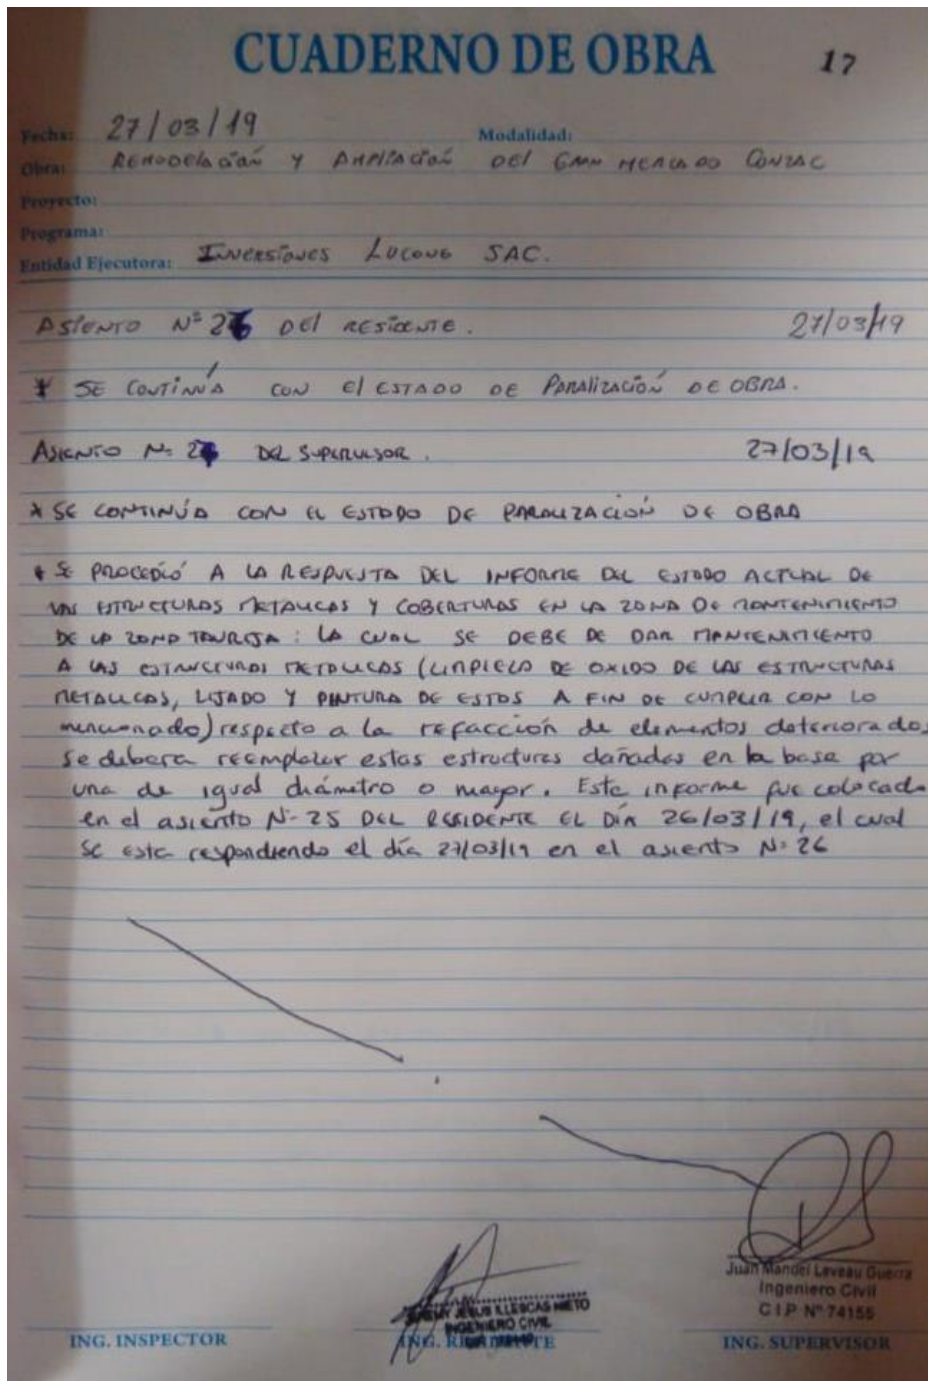 CUADERNO DE OBRA 17
Fecha: 27/03/19 Modalidad:
Obra: REMODELACIÓN Y AMPLIACIÓN DEL GRAN MERCADO CONZAC
Proyecto:
Programa:
Entidad Ejecutora: INVERSIONES LUCONG SAC.
ASIENTO Nº 26 DEL RESIDENTE. 27/03/19
* SE CONTINÚA CON EL ESTADO DE PARALIZACIÓN DE OBRA.
ASIENTO Nº DEL SUPERVISOR. 27/03/19
* SE CONTINÚA CON EL ESTADO DE PARALIZACIÓN DE OBRA
* SE PROCEDIÓ A LA RESPUESTA DEL INFORME DEL ESTADO ACTUAL DE
LAS ESTRUCTURAS METALICAS Y COBERTURAS EN LA ZONA DE MANTENIMIENTO
DE LA ZONA : LA CUAL SE DEBE DE DAR MANTENIMIENTO
A LAS ESTRUCTURAS METALICAS (LIMPIEZA DE OXIDO DE LAS ESTRUCTURAS
METALICAS, LIJADO Y PINTURA DE ESTOS A FIN DE CUMPLIR CON LO
mencionado) respecto a la refacción de elementos deteriorados
se debera reemplazar estas estructuras dañadas en la base por
una de igual diámetro o mayor. Este informe fue colocado
en el asiento Nº 25 DEL RESIDENTE EL DÍA 26/03/19, el cual
se esta respondiendo el día 27/03/19 en el asiento Nº 26
Juan Manuel Leveau Guerra
Ingeniero Civil
CIP Nº 74155
JESUS ILLESCAS NIETO
INGENIERO CIVIL
ING. INSPECTOR ING. RESIDENTE ING. SUPERVISOR